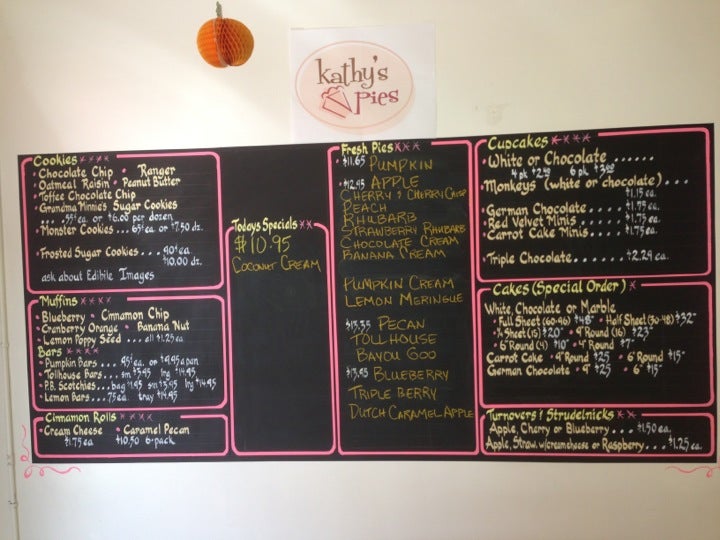 kathy's
Pies
Cookies
• Chocolate Chip • Ranger
• Oatmeal Raisin • Peanut Butter
• Toffee Chocolate Chip
• Grandma Minnie's Sugar Cookies
.... 55¢ ea. or $6.00 per dozen
• Monster Cookies... 65¢ ea. or $7.50 dz.
• Frosted Sugar Cookies.... 90¢ ea
$10.00 dz.
ask about Edibile Images
Muffins
• Blueberry • Cinnamon Chip
• Cranberry Orange • Banana Nut
• Lemon Poppy Seed ... all $1.25 ea.
Bars
• Pumpkin Bars... 95¢ ea. or $9.95 a pan
• Tollhouse Bars... sm $3.95 lrg $14.95
• P.B. Scotchies... bag $1.95 sm $3.95 lrg $14.95
• Lemon Bars.... 75 ea. tray $14.95
Cinnamon Rolls
• Cream Cheese • Caramel Pecan
$1.75 ea. $10.50 6-pack
Todays Specials
$10.95
Coconut Cream
Fresh Pies
• $11.65 Pumpkin
• $12.95 Apple
Cherry & Cherry Crisp
Peach
Rhubarb
Strawberry Rhubarb
Chocolate Cream
Banana Cream
Pumpkin Cream
Lemon Meringue
• $13.35 Pecan
Toll House
Bayou Goo
• $13.95 Blueberry
Triple Berry
Dutch Caramel Apple
Cupcakes
• White or Chocolate ......
4 pk 6 pk
• Monkeys (white or chocolate)...
$1.15 ea.
• German Chocolate ..... $1.75 ea.
• Red Velvet Minis ..... $1.75 ea.
• Carrot Cake Minis..... $1.75 ea.
• Triple Chocolate......$2.29 ea.
Cakes (Special Order)
White, Chocolate or Marble
• Full Sheet (60-96) $48 • Half Sheet (30-48) $32
• ¼ Sheet (15) $20 • 9" Round (16) $23
• 6" Round (4) $10 • 4" Round $7
Carrot Cake • 9" Round $25 • 6 Round $15
German Chocolate • 9" $25 • 6" $15
Turnovers & Strudelnicks
Apple, Cherry or Blueberry... $1.50 ea.
Apple, Straw. w/creamcheese or Raspberry... $1.25 ea.